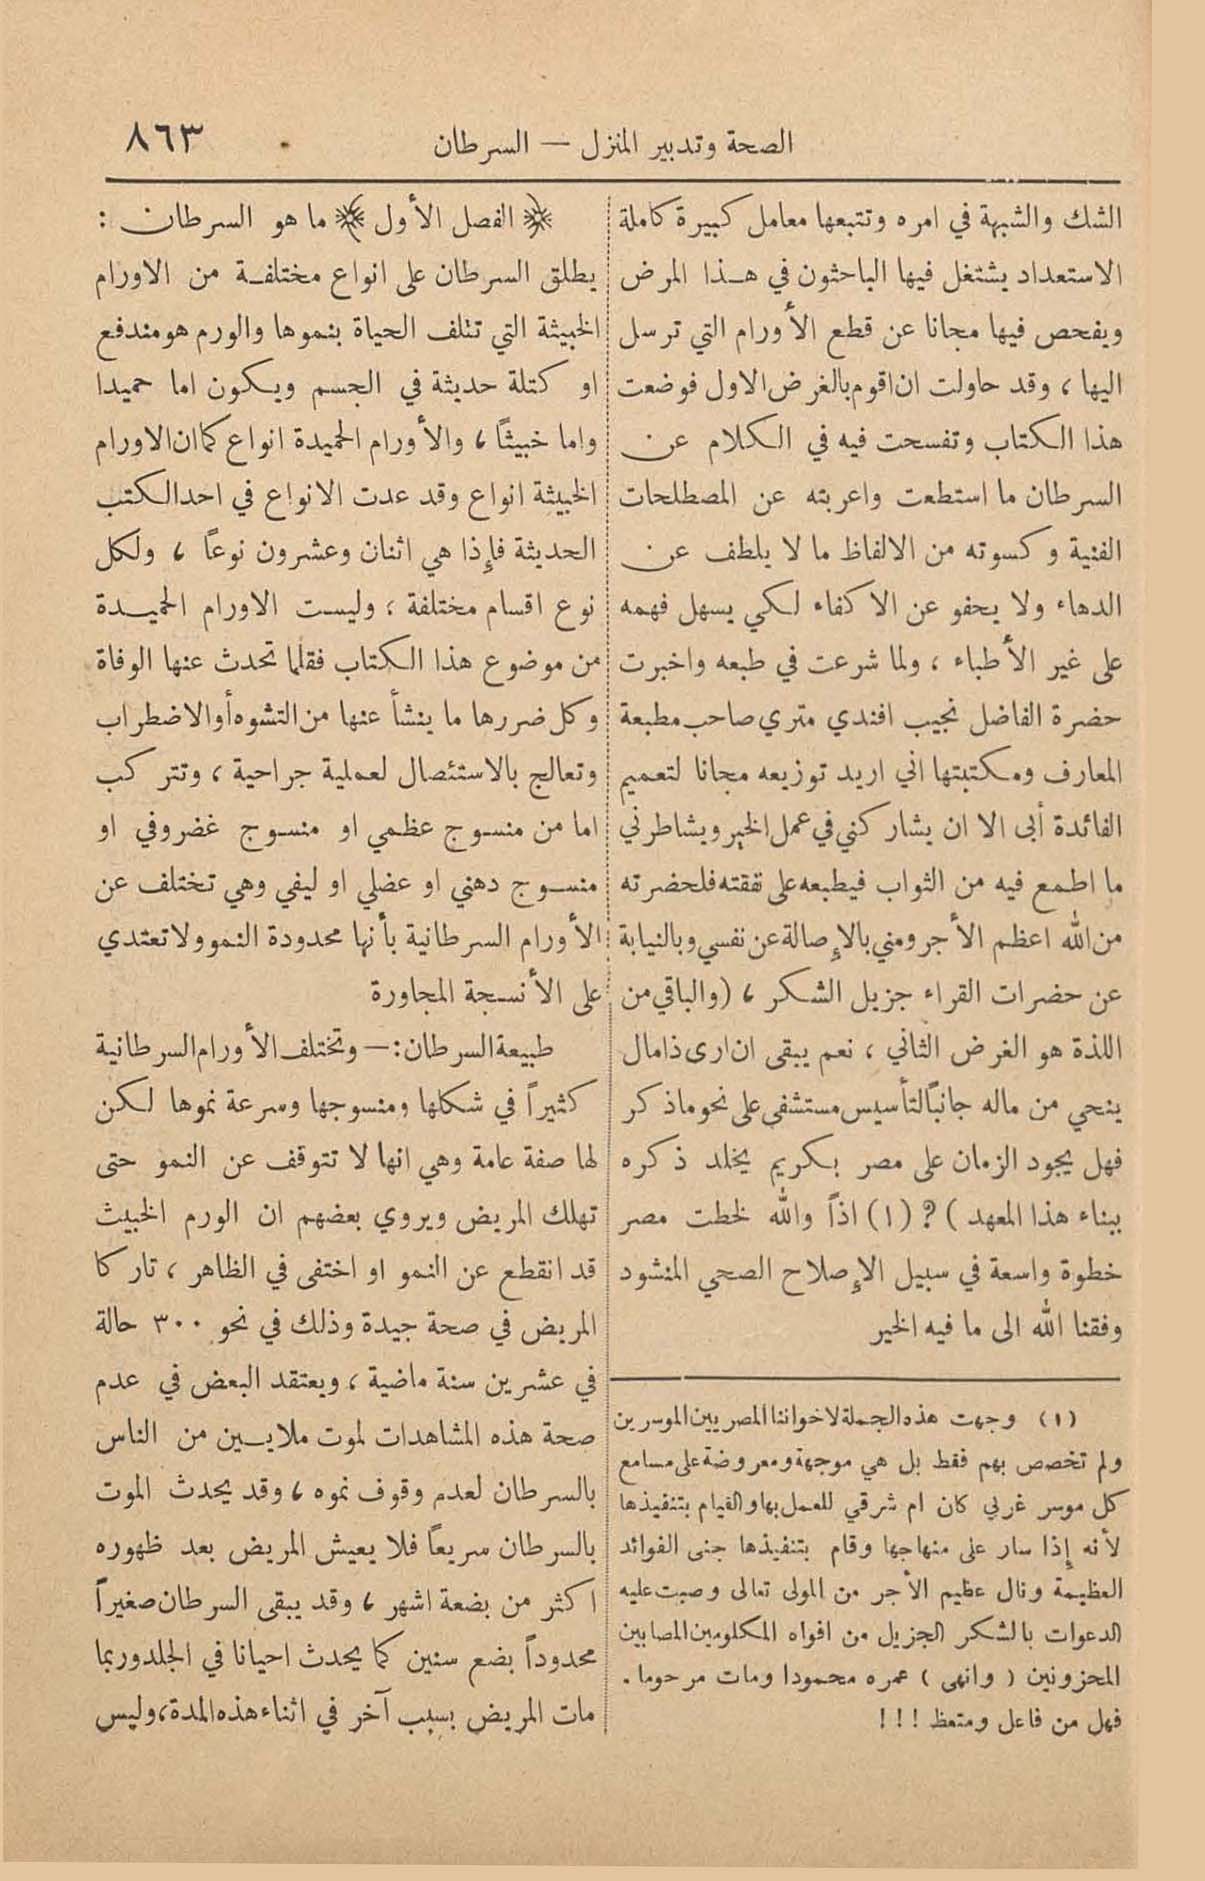 الصحة وتدبير المنزل — السرطان ٨٦٣
الشك والشبهة في امره وتتبعها معامل كبيرة كاملة
الاستعداد يشتغل فيها الباحثون في هذا المرض
ويفحص فيها مجانا عن قطع الأورام التي ترسل
اليها ، وقد حاولت ان اقوم بالغرض الاول فوضعت
هذا الكتاب وتفسحت فيه في الكلام عن
السرطان ما استطعت واعربته عن المصطلحات
الفنية وكسوته من الالفاظ ما لا يلطف عن
الدهاء ولا يحفو عن الاكفاء لكي يسهل فهمه
على غير الأطباء ، ولما شرعت في طبعه واخبرت
حضرة الفاضل نجيب افندي متري صاحب مطبعة
المعارف ومكتبتها اني اريد توزيعه مجانا لتعميم
الفائدة أبى الا ان يشاركني في عمل الخير ويشاطرني
ما اطمع فيه من الثواب فيطبعه على نفقته فلحضرته
من الله اعظم الأجر ومني بالإصالة عن نفسي وبالنيابة
عن حضرات القراء جزيل الشكر ، (والباقي من
اللذة هو الغرض الثاني ، نعم يبقى ان ارى ذا مال
ينحي من ماله جانباً لتأسيس مستشفى على نحو ما ذكر
فهل يجود الزمان على مصر بكريم يخلد ذكره
ببناء هذا المعهد ) ? (١) اذاً والله لخطت مصر
خطوة واسعة في سبيل الإصلاح الصحي المنشود
وفقنا الله الى ما فيه الخير
(١) وجهت هذه الجملة لاخواننا المصريين الموسرين
ولم تخصص بهم فقط بل هي موجهة ومعروضة على مسامع
كل موسر غربي كان ام شرقي للعمل بها والقيام بتنفيذها
لأنه إذا سار على منهاجها وقام بتنفيذها جنى الفوائد
العظيمة ونال عظيم الأجر من المولى تعالى وصبت عليه
الدعوات بالشكر الجزيل من افواه المكلومين المصابين
المحزونين ( وانهى ) عمره محمودا ومات مرحوما .
فهل من فاعل ومتعظ ! ! !
﴿ الفصل الأول ﴾ ما هو السرطان :
يطلق السرطان على انواع مختلفة من الاورام
الخبيثة التي تتلف الحياة بنموها والورم هو مندفع
او كتلة حديثة في الجسم ويكون اما حميدا
واما خبيثاً ، والأورام الحميدة انواع كما ان الاورام
الخبيثة انواع وقد عدت الانواع في احد الكتب
الحديثة فإذا هي اثنان وعشرون نوعاً ، ولكل
نوع اقسام مختلفة ، وليست الاورام الحميدة
من موضوع هذا الكتاب فقلما تحدث عنها الوفاة
وكل ضررها ما ينشأ عنها من التشوه أو الاضطراب
وتعالج بالاستئصال لعملية جراحية ، وتتركب
اما من منسوج عظمي او منسوج غضروفي او
منسوج دهني او عضلي او ليفي وهي تختلف عن
الأورام السرطانية بأنها محدودة النمو ولا تعتدي
على الأنسجة المجاورة
طبيعة السرطان : — وتختلف الأورام السرطانية
كثيراً في شكلها ومنسوجها وسرعة نموها لكن
لها صفة عامة وهي انها لا تتوقف عن النمو حتى
تهلك المريض ويروي بعضهم ان الورم الخبيث
قد انقطع عن النمو او اختفى في الظاهر ، تاركا
المريض في صحة جيدة وذلك في نحو ٣٠٠ حالة
في عشرين سنة ماضية ، ويعتقد البعض في عدم
صحة هذه المشاهدات لموت ملايين من الناس
بالسرطان لعدم وقوف نموه ، وقد يحدث الموت
بالسرطان سريعاً فلا يعيش المريض بعد ظهوره
اكثر من بضعة اشهر ، وقد يبقى السرطان صغيراً
محدوداً بضع سنين كما يحدث احيانا في الجلد وربما
مات المريض بسبب آخر في اثناء هذه المدة، وليس